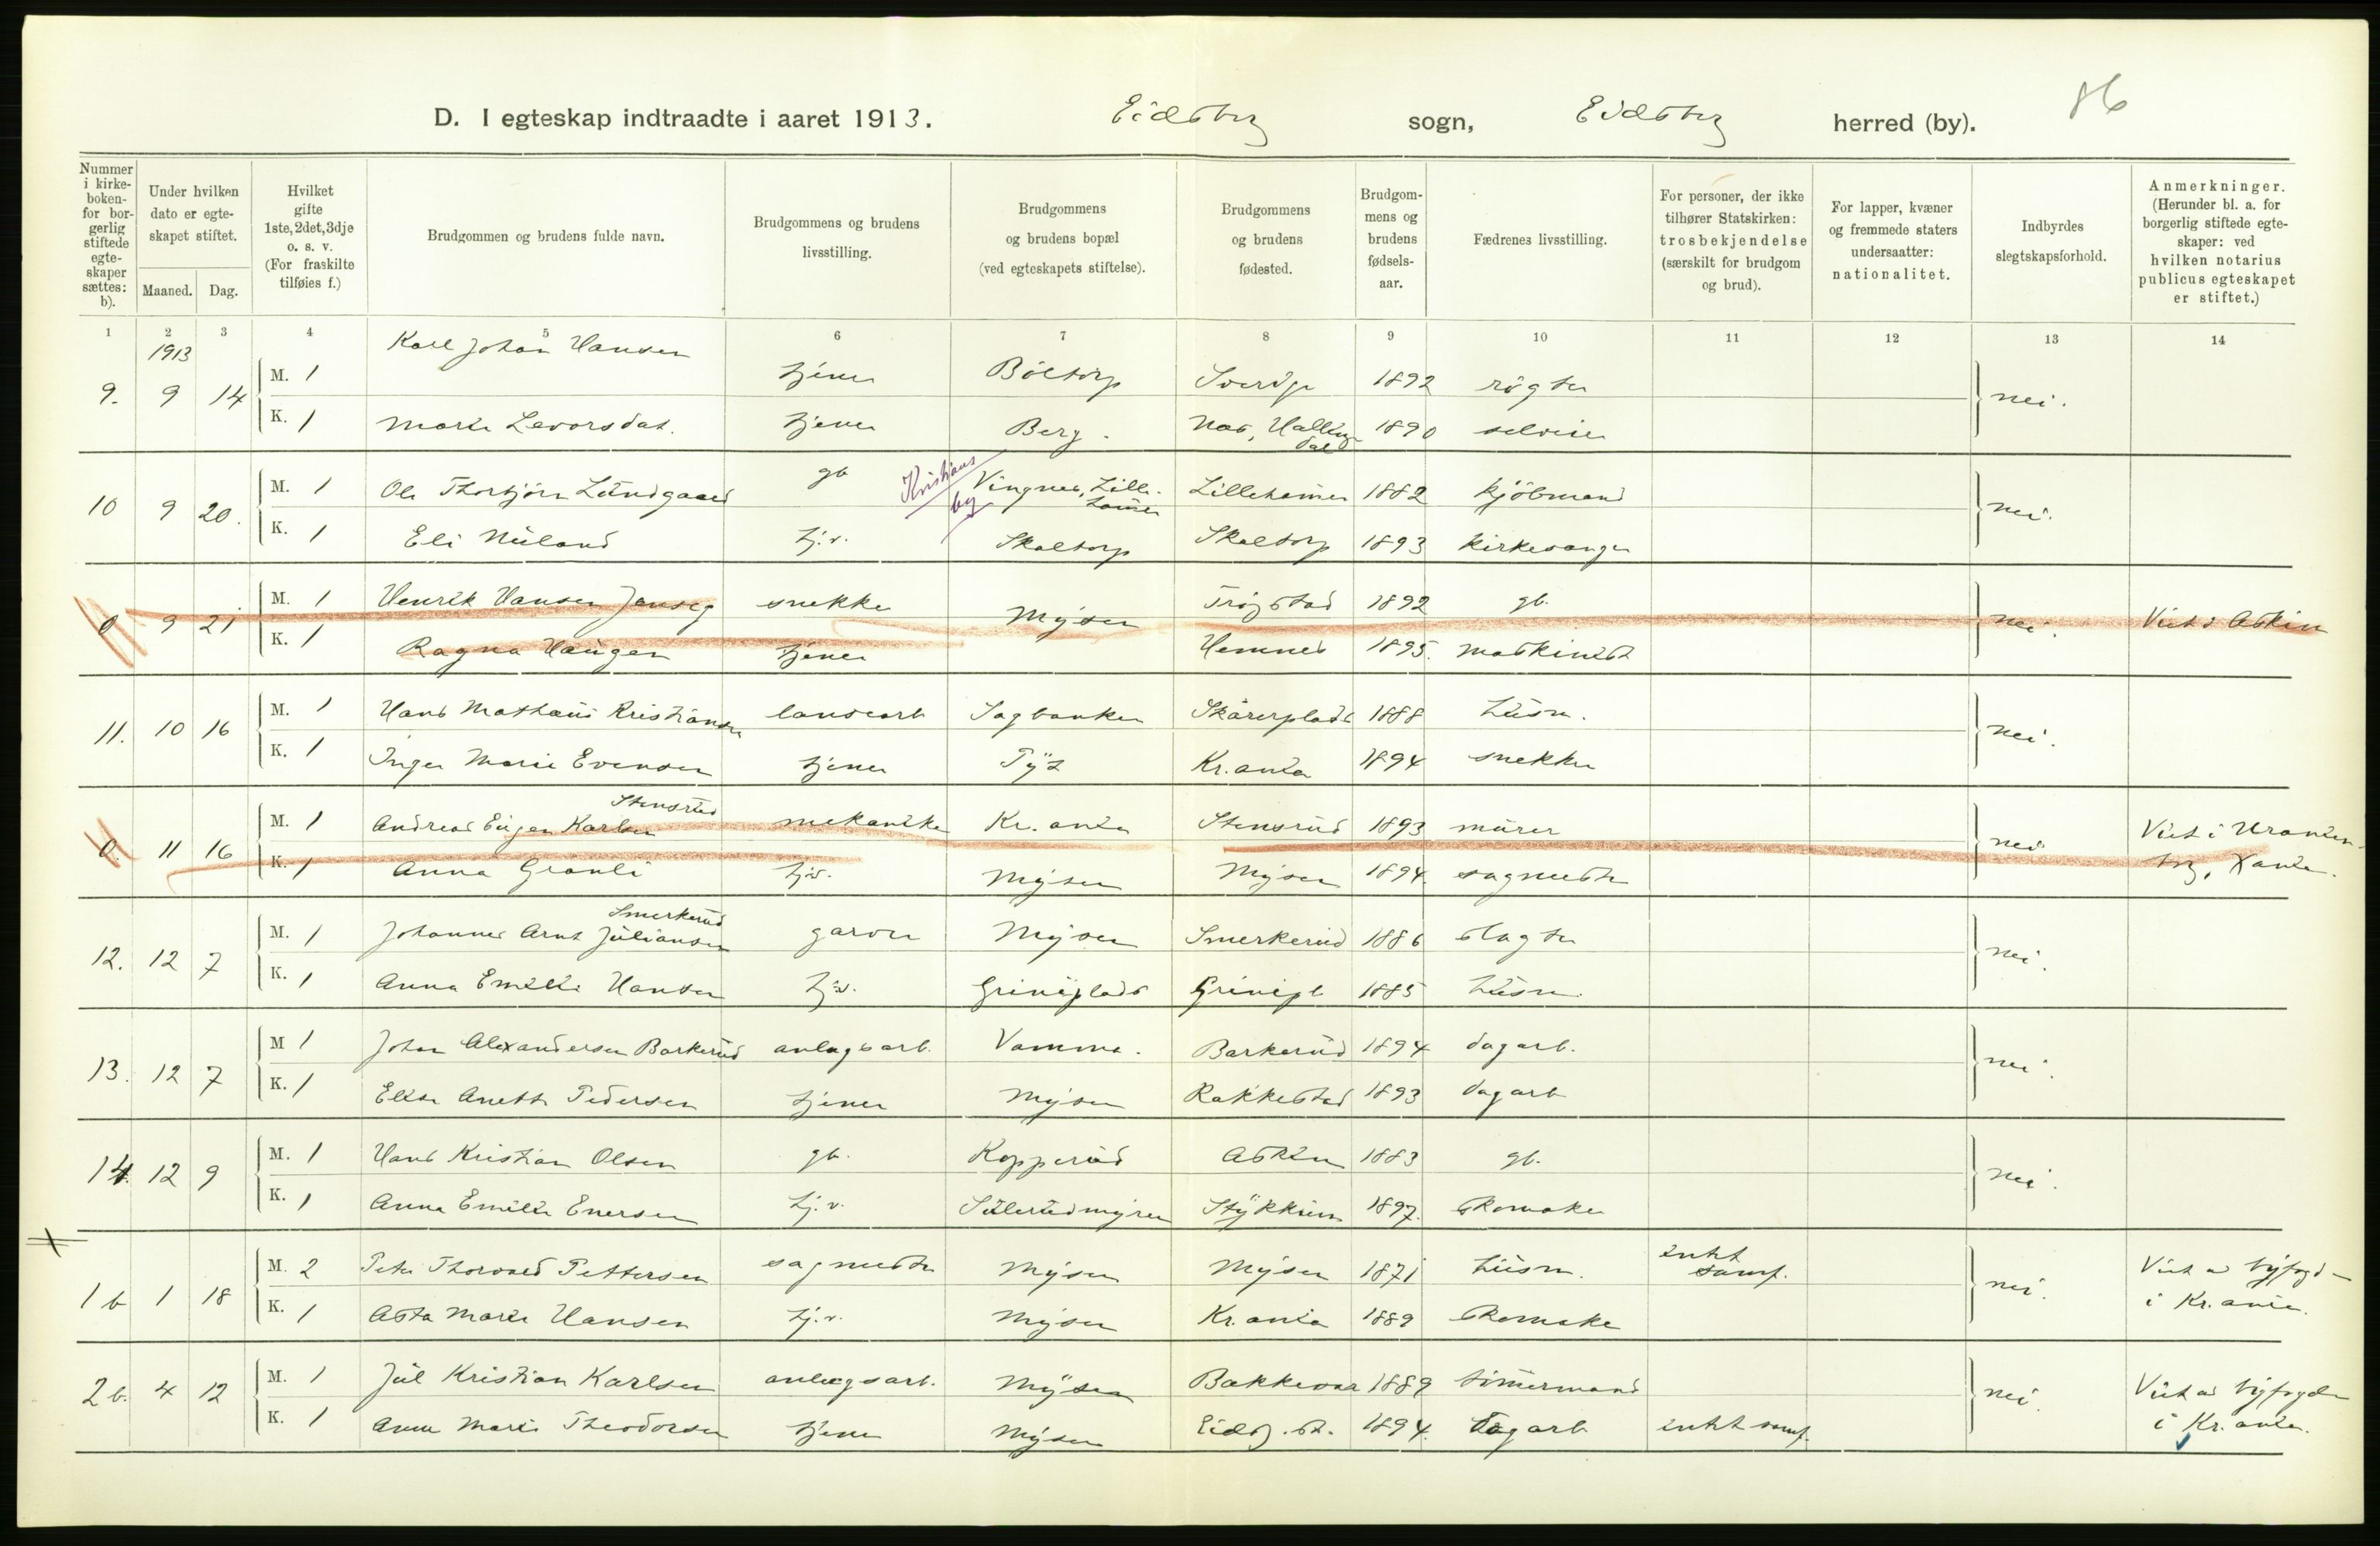 86
D. I egteskap indtraadte i aaret 1913. Eidsberg sogn, Eidsberg herred (by).
Nummer i kirkeboken- for borgerlig stiftede egteskaper sættes: b).
Under hvilken dato er egteskapet stiftet.
Maaned. Dag.
Hvilket gifte 1ste, 2det, 3dje o. s. v. (For fraskilte tilføies f.)
Brudgommen og brudens fulde navn.
Brudgommens og brudens livsstilling.
Brudgommens og brudens bopæl (ved egteskapets stiftelse).
Brudgommens og brudens fødested.
Brudgommens og brudens fødselsaar.
Fædrenes livsstilling.
For personer, der ikke tilhører Statskirken: trosbekjendelse (særskilt for brudgom og brud).
For lapper, kvæner og fremmede staters undersaatter: nationalitet.
Indbyrdes slegtskapsforhold.
Anmerkninger. (Herunder bl. a. for borgerlig stiftede egteskaper: ved hvilken notarius publicus egteskapet er stiftet.)
1 2 3 4 5 6 7 8 9 10 11 12 13 14
1913
9. 9 14 M. 1 Karl Johan Hansen tjener Böltorp Sverige 1892 røgter nei.
K. 1 Marie Levorsdat. tjener Berg. Nes, Hallingdal 1890 selveier
10 9 20. M. 1 Ole Thorbjörn Lundgaard gb Kristians by Vingnes, Lillehamer Lillehamer 1882 kjöbmand nei.
K. 1 Eli Nuland hj.v. Skaltorp Skaltorp 1893 kirkesanger
0 9 21 M. 1 Henrik Hansen Jenseg snekker Mysen Trøgstad 1892 gb. nei. Viet i Askim
K. 1 Ragna Haugen tjener Hemnes 1895. maskinist
11. 10 16 M. 1 Hans Mathæus Kristiansen landearb Sagbanken Skårerplads 1888 husm. nei.
K. 1 Inger Marie Evensen tjener Kr.ania 1894 snekker
0. 11 16 M. 1 Andreas Eugen Karlsen Stensrud mekaniker Kr.ania Stensrud 1893 murer nei Viet i Uranienbrg, Xania.
K. 1 Anna Grønli hj.v. Mysen Mysen 1894. sagmester
12. 12 7 M. 1 Johannes Arnt Juliansen Smerkerud garver Mysen Smerkerud 1886 slagter nei.
K. 1 Anna Emilie Hansen hj.v. Griniplads Grinipl 1885 husm.
13. 12 7 M 1 Johan Alexandersen Barkerud anlegsarb. Vamma. Barkerud 1894 dagarb. nei.
K. 1 Elise Anette Pedersen tjener Mysen Rakkestad 1893 dagarb
14. 12 9 M. 1 Hans Kristian Olsen gb. Kopperud Askim 1883 gb. nei.
K. 1 Anna Emilie Enersen hj.v. Sulerudmyren Stykkum 1897. skomaker
1 b 1 18 M. 2 Peter Thorvald Pettersen sagmester Mysen Mysen 1871 husm. intet samf. nei. Viet av byfogd i Kr.ania.
K. 1 Asta Marie Hansen hj.v. Mysen Kr.ania 1889 skomaker
2 b. 4 12 M. 1 Jul Kristian Karlsen anlegsarb. Mysen Bakkevar 1889 tömermand nei. Viet av byfogden i Kr.ania.
K. 1 Anna Marie Theodorsen tjener Mysen Eidsb. st. 1894. dagarb intet samf.